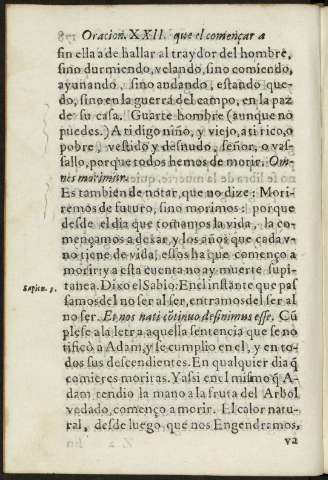 Oracion. XXII. que el començar a
sin ella a de hallar al traydor del hombre,
sino durmiendo, velando, sino comiendo,
ayunando, sino andando, estando que-
do, sino en la guerra del campo, en la paz
de su casa. Guarte hombre (aunque no
puedes.) A ti digo niño, y viejo, a ti rico, o
pobre, vestido y desnudo, señor, o va-
sallo, porque todos hemos de morir. Om-
nes morimur.
Es tambien de notar, que no dize: Mori-
remos de futuro, sino morimos: porque
desde el dia que tomamos la vida, la co-
mençamos a dexar, y los años que cada v-
no tiene de vida, essos ha que començo a
morir: y a esta cuenta no ay muerte supi-
Sapien. 5.
tanea. Dixo el Sabio: En el instante que pas
samos del no ser al ser, entramos del ser al
no ser. Et nos nati cõtinuo desinimus esse. Cũ
plese a la letra aquella sentencia que se no
tificò a Adam, y se cumplio en el, y en to-
dos sus descendientes. En qualquier dia q̃
comieres moriras. Y assi en el mismo q̃ A-
dam tendio la mano a la fruta del Arbol
vedado, començo a morir. El calor natu-
ral, desde luego que nos Engendramos,
va